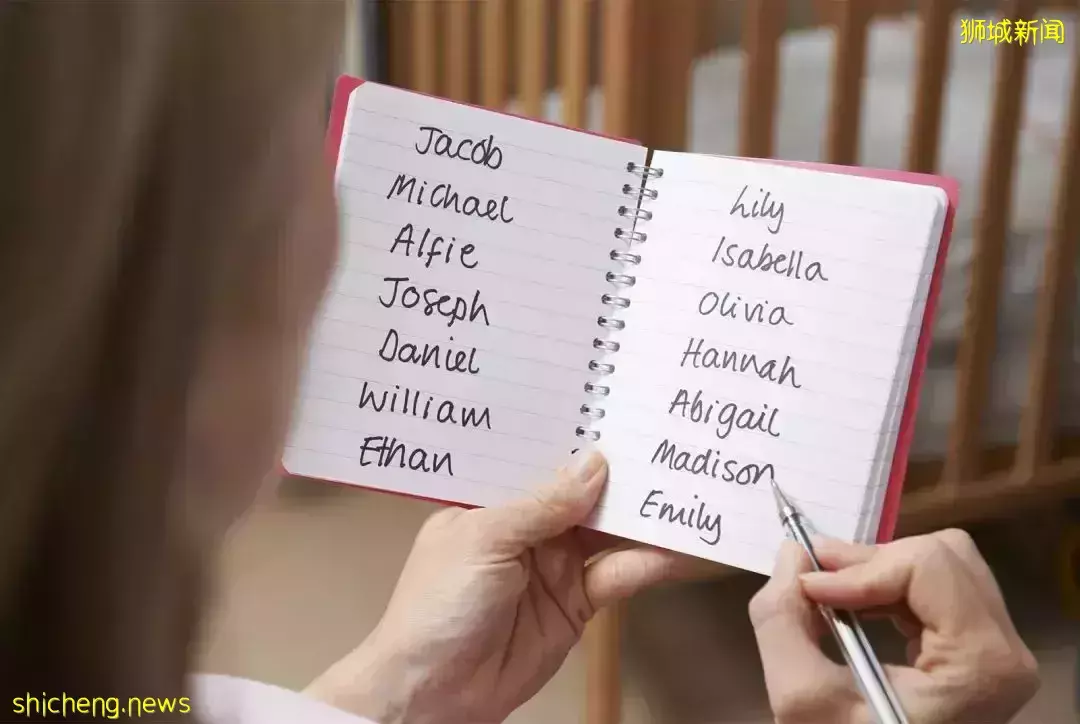 狮城新闻
Jacob
Michael
Alfie
Joseph
Daniel
William
Ethan
Lily
Isabella
Olivia
Hannah
Abigail
Madison
Emily
shicheng.news